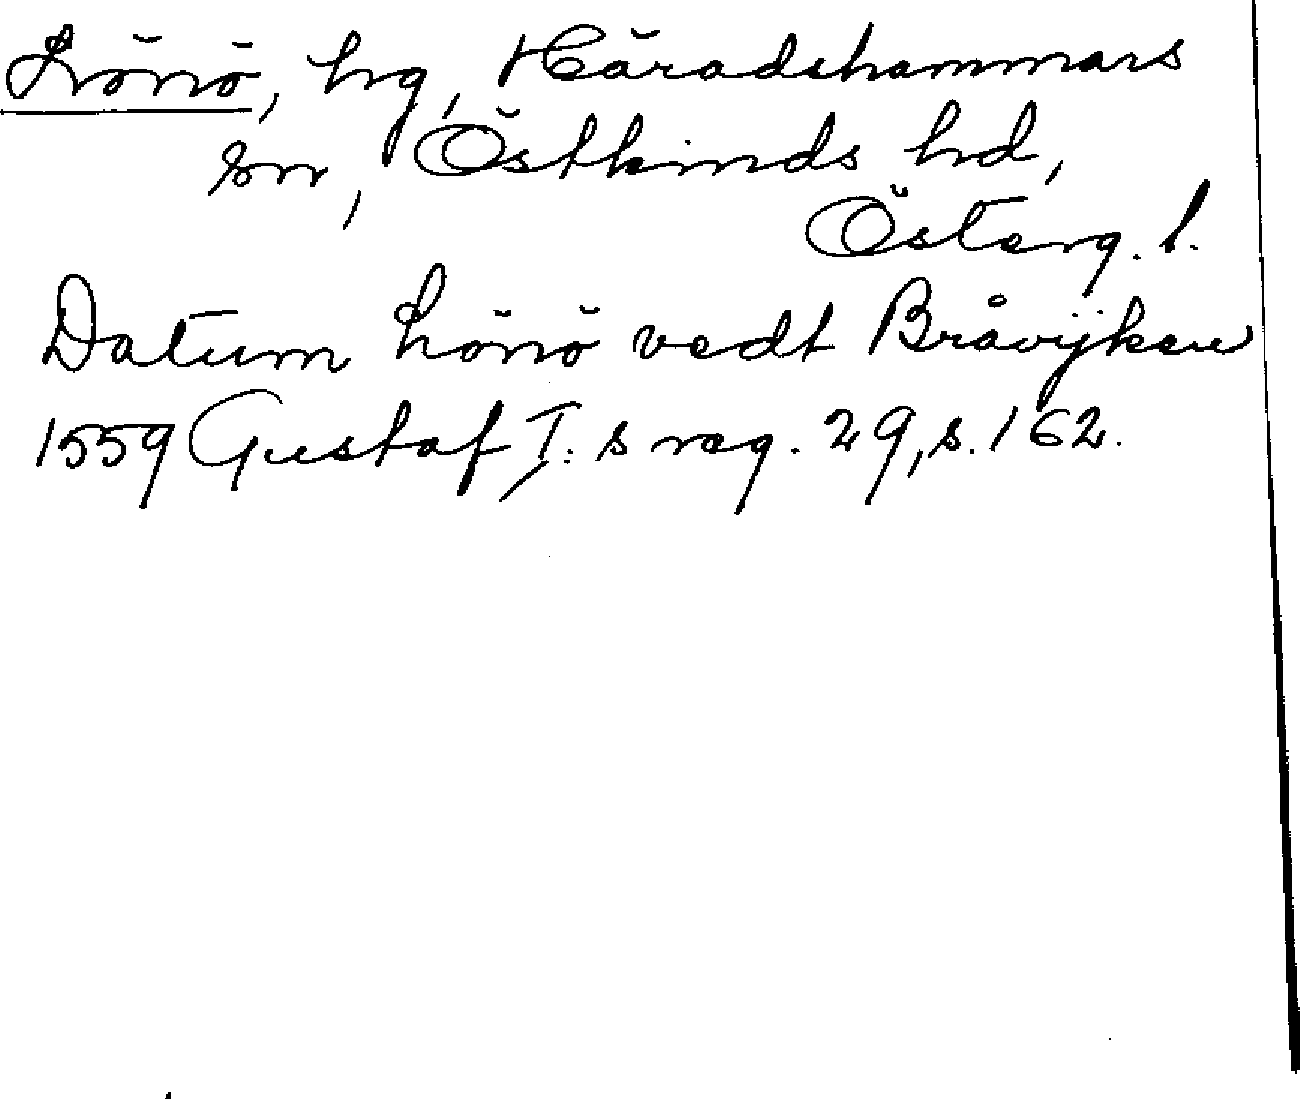 Lönö, hg, Häradshammars
sn, Östkinds hd,
Österg. l.
Datum Lönö vedt Bråvijken
1559 Gustaf I:s reg. 29, s. 162.